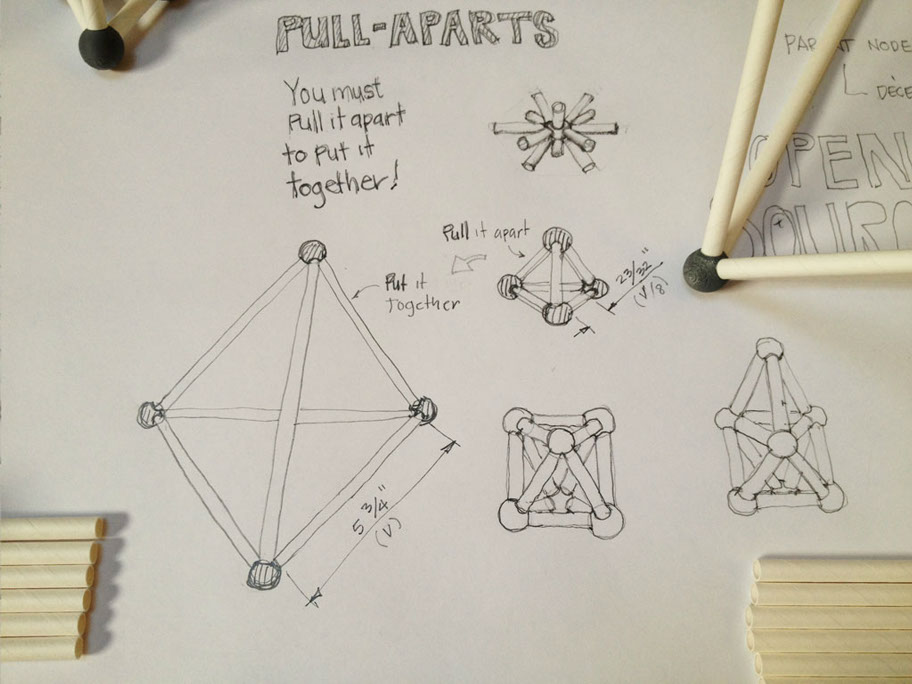 PULL-APARTS
You must
Pull it apart
to put it
together!
PAR NT NODE
DÈCE
OPEN
SOURC
Pull it apart
23/32"
(V/8)
Put it
Together
5 3/4"
(V)